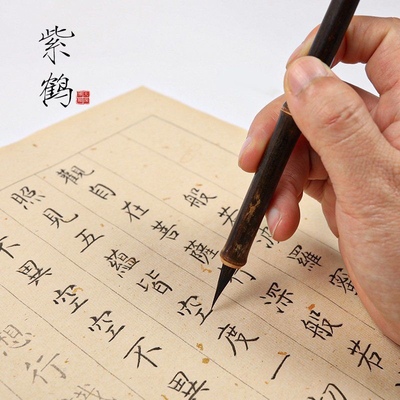 紫鶴
般若波羅蜜
觀自在菩薩行深般若
照見五蘊皆空度一切
不異空空不異
想行